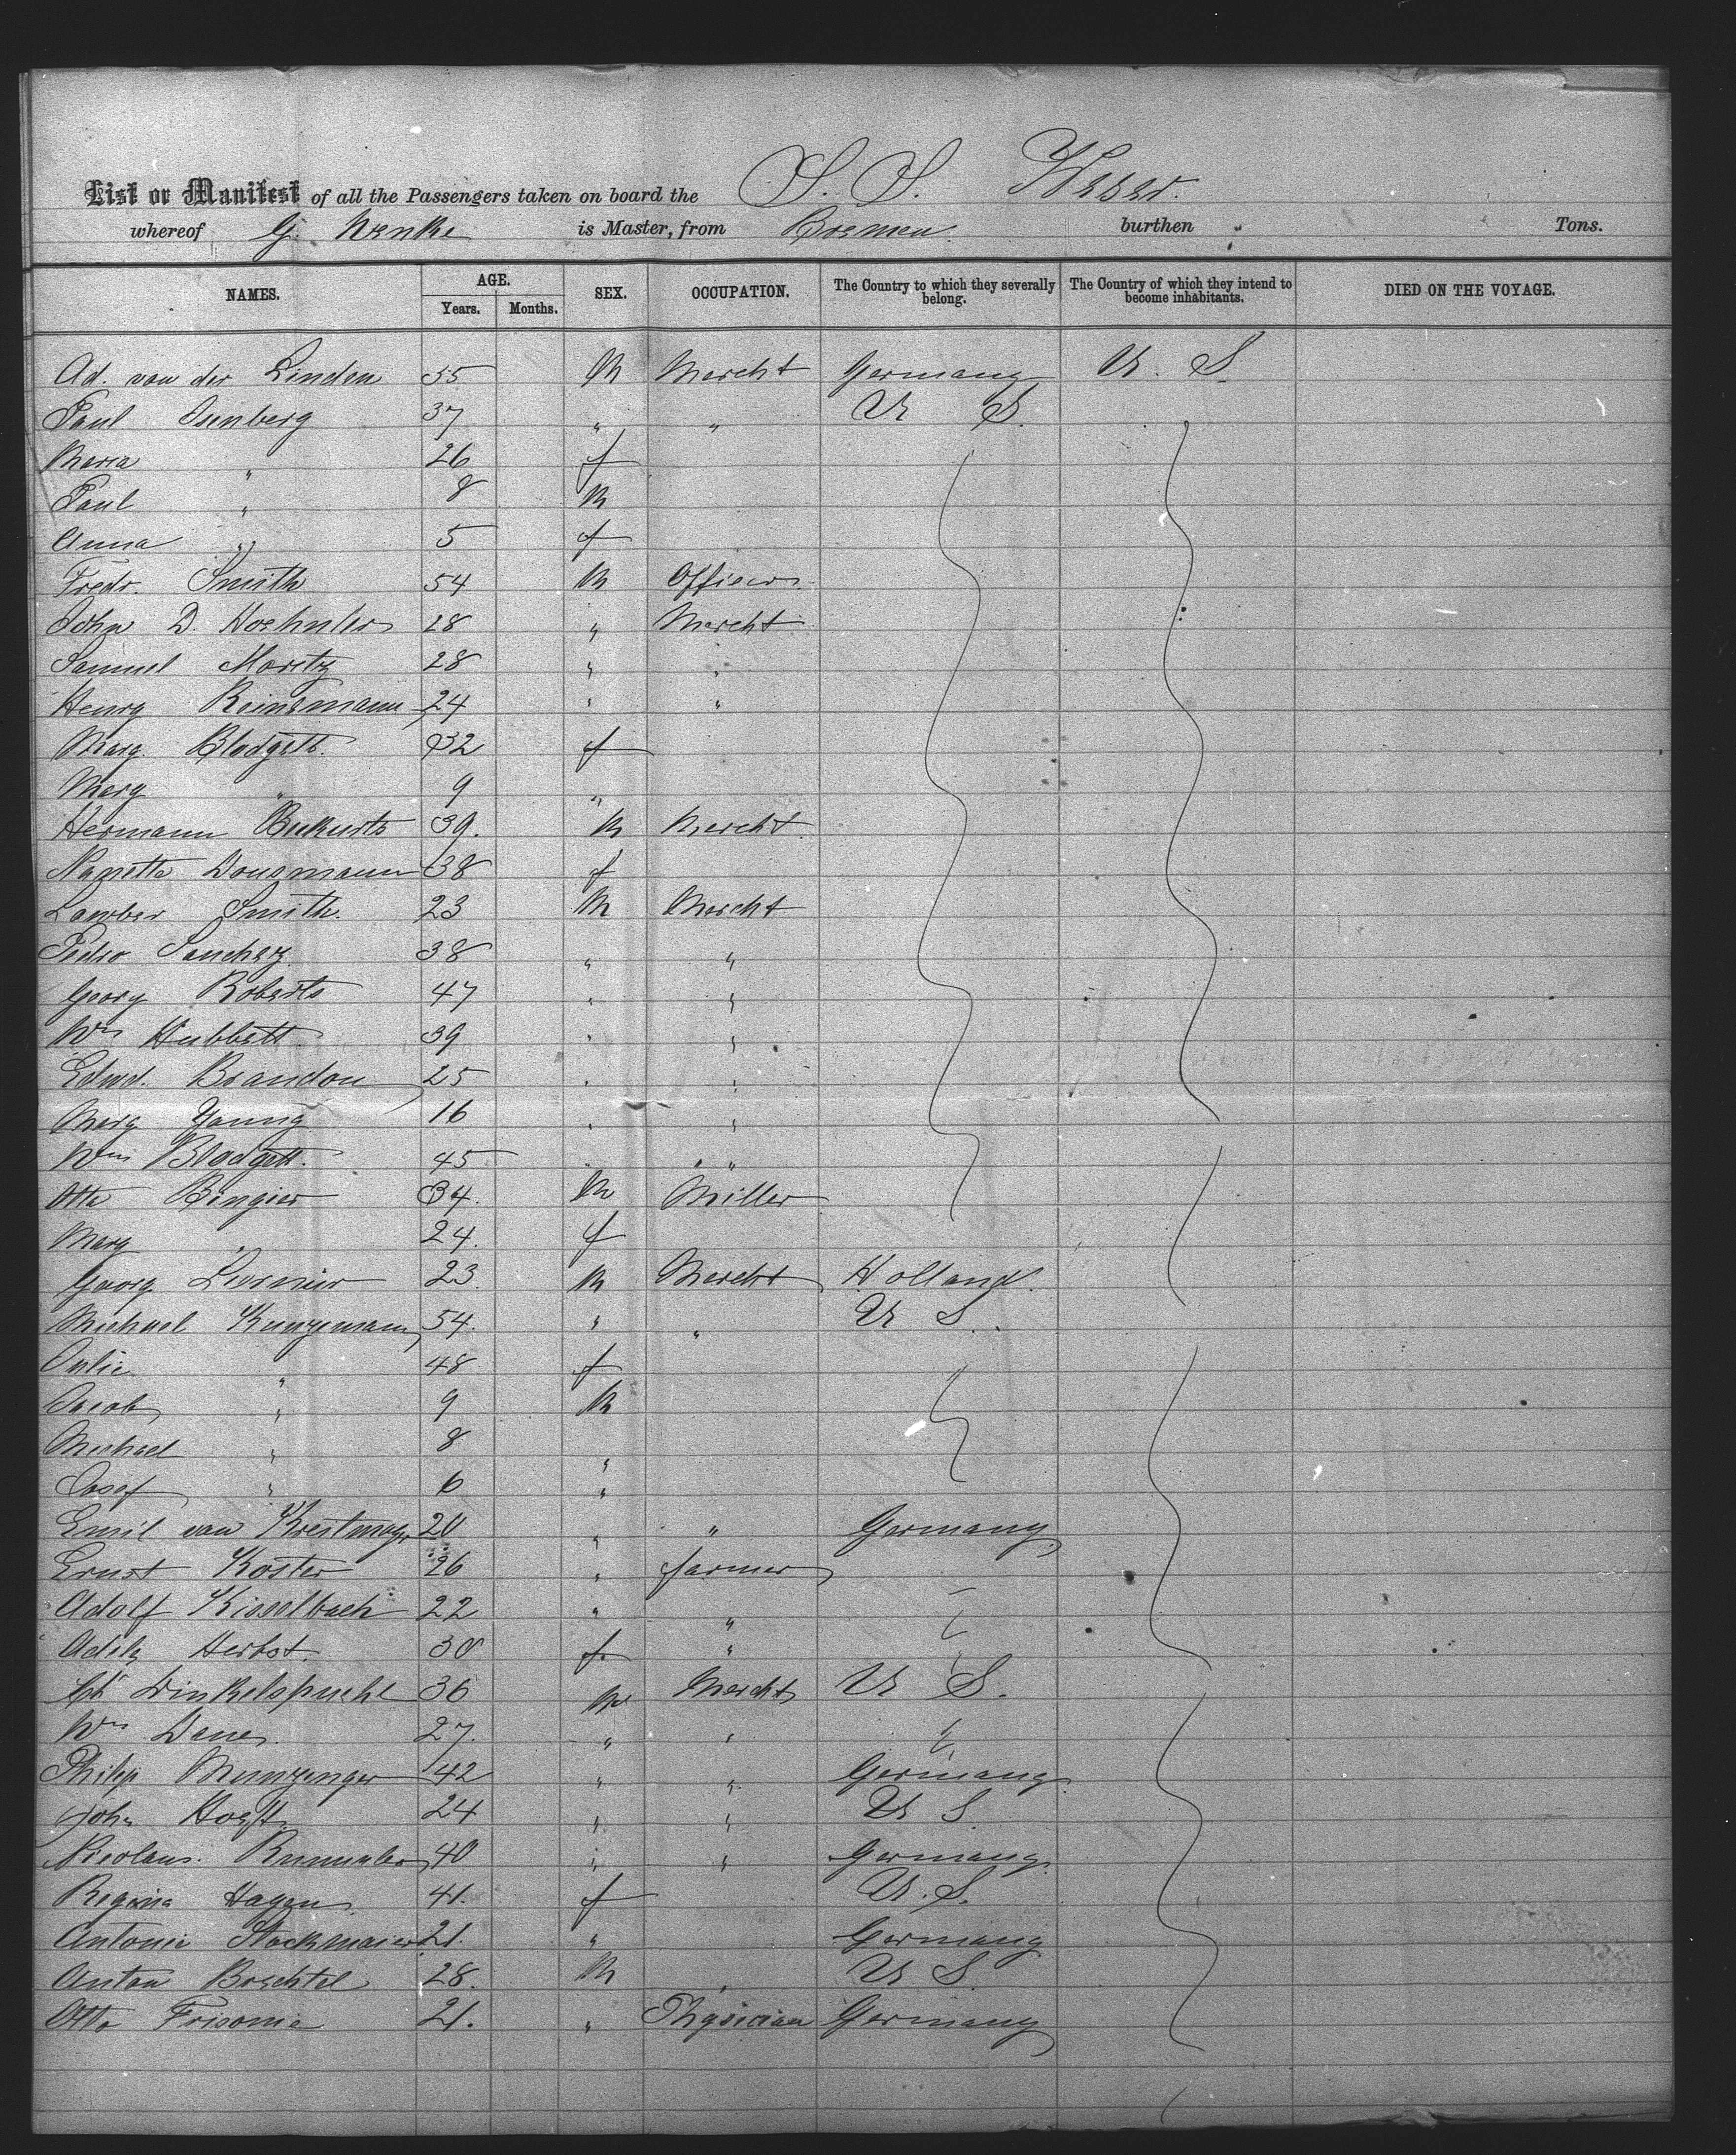 List or Manifest of all the Passengers taken on board the S. S. Weser.
whereof G. Wenke is Master, from Bremen burthen Tons.
NAMES. AGE. Years. Months. SEX. OCCUPATION. The Country to which they severally belong. The Country of which they intend to become inhabitants. DIED ON THE VOYAGE.
Ad. von der Linden 35 M Mercht Germany U. S.
Paul Isenberg 37 " " U S.
Maria " 26 f
Paul " 8 M
Anna " 5 f
Fredr. Smith 54 M Officer
John D. 28 " Mercht
Samuel Moritz 28 " "
Henry Reinsmann 24 " "
Mary Blodgett. 32 f
Mary " 9 "
Hermann 39. M Mercht.
Nanette Dousmann 38 f
Smith. 23 M Mercht
Pedro Sanchez 38 " "
Georg Roberts 47 " "
Wm Hubbett 39 " "
Edwd. Brandon 25 " "
Mary Young 16 " "
Wm Blodgett. 45 " "
Otto Bingier 34. M Miller
Mary " 24. f
Georg 23. M Mercht Holland.
Michael Kunzemann 54. " " U S.
Julie " 48 f
Jacob " 9 M
Michael " 8 "
Josef " 6 "
Emil von 20 " " Germany
Ernst Koster 26 " farmer
Adolf Kisselbach 22 " " "
Adele Herbst. 30 f " "
Dinkelspuehl 36 M Mercht U S.
Wm Danes. 27. " " "
Philip Munzinger 42 " " Germany
John Hoeft. 24 " " U S.
Nicolaus. 40 " " Germany.
Regina Hagen 41. f U. S.
Antonie Stockmaier 21. " Germany
Anton Bechtel 28. M " U S.
Otto Frisonie 21. " Physician Germany